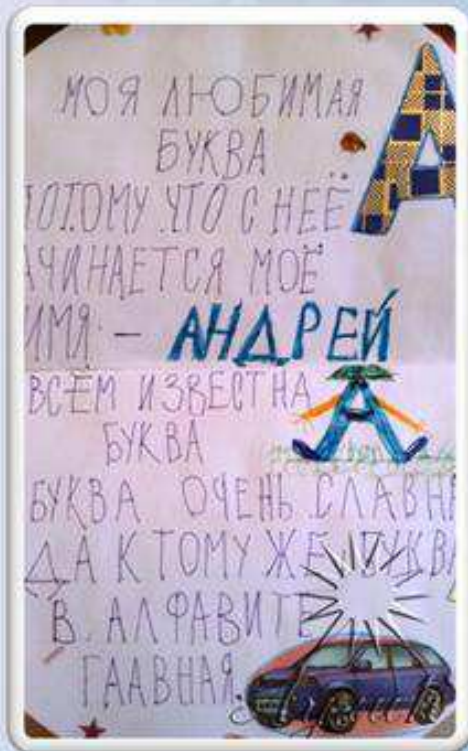 МОЯ ЛЮБИМАЯ А
БУКВА
ПОТОМУ ЧТО С НЕЁ
АЧИНАЕТСЯ МОЁ
ИМЯ – АНДРЕЙ
ВСЕМ ИЗВЕСТНА
БУКВА А
БУКВА ОЧЕНЬ СЛАВН
ДА К ТОМУ ЖЕ БУКВ
В АЛФАВИТЕ
ГЛАВНАЯ.